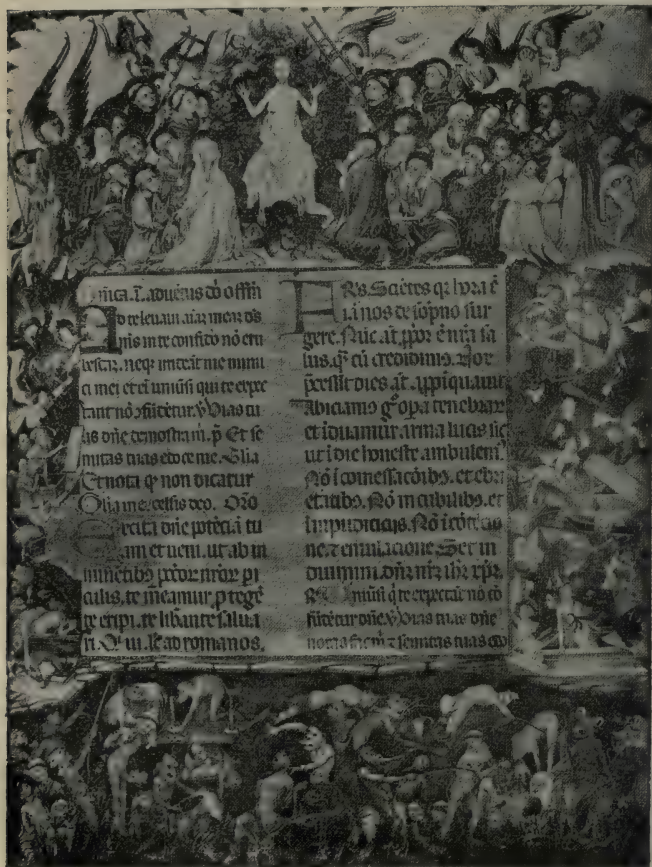 aduētus dō offm
Ad te leuaui aīaz meā ds
in te confido nō eru
bescaz. neqz me inimi
ci mei et eī uniūsi qui te expe
tant nō ɔfūdētur. v̄ Uias tu
as dn̄e demostra m̄. p̄ Et se
mitas tuas edoce me. Glīa
Et nota qz non dicatur
Glīa deo. Oro
Excita dn̄e potēciā tu
am et ueni. ut ab in
minētibz pctōr nrōr pi
culis. te meamur. ptegē
te eripi. te libante salua
ri. Q ui. ad romanos.
Frs. Sciētes qz hora ē
iā nos de sōpno sur
gere. Nūc at. ppor ē nra sa
lus. qz cū credidimz. Nox
p̄cessit dies at. appīquauit
Abiciamz gͦ opa tenebrar
et īduamur arma lucis sic
ut ī die honeste ambulemz
Nō ī comessacōibz. et ebri
etatibz. Nō in cubilibz. et
impudiciciis. Nō ī cōtēcio
ne. ⁊ emulacione Set in
duimini. dn̄z nrz ihz xpz.
q̄ te expectāt nō cō
fūdētur dn̄e. v̄ Uias tuas dn̄e
notas fac m̄ ⁊ semitas tuas